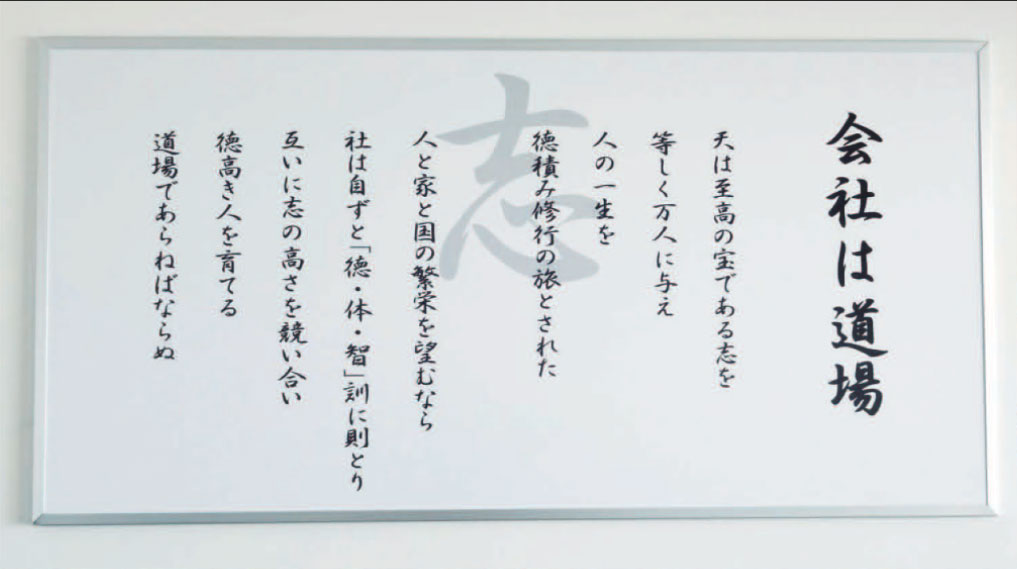 会社は道場
天は至高の宝である志を
等しく万人に与え
人の一生を
徳積み修行の旅とされた
志
人と家と国の繁栄を望むなら
社は自ずと「徳・体・智」訓に則とり
互いに志の高さを競い合い
徳高き人を育てる
道場であらねばならぬ